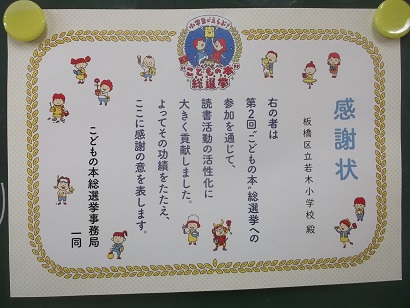 小学生がえらぶ!
"こどもの本"
総選挙
感謝状
板橋区立若木小学校 殿
右の者は
第2回"こどもの本"総選挙への
参加を通じて、
読書活動の活性化に
大きく貢献しました。
よってその功績をたたえ、
ここに感謝の意を表します。
こどもの本総選挙事務局 一同